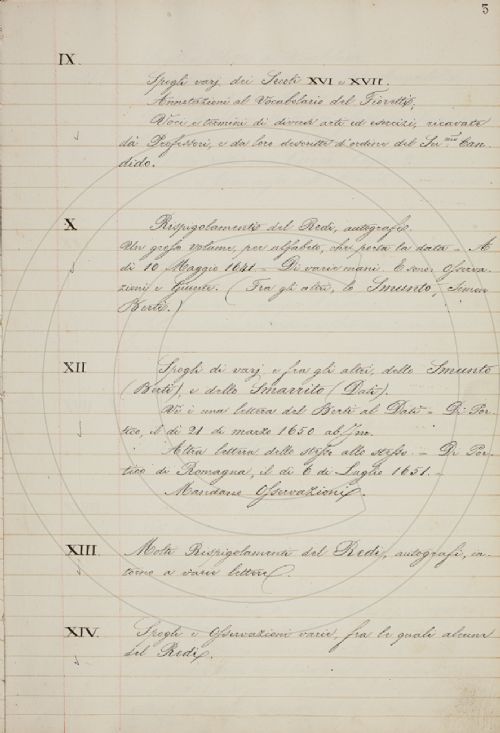 5
IX.
Spogli varj dei Secoli XVI e XVII.
Annotazioni al Vocabolario del Fioretti,
Voci e termini di diverse arti ed esercizi, ricavate
dà Professori, e da loro descritte d'ordine del Ser.mo Can-
dido.
X
Rispigolamento del Redi, autografo.
Un grosso volume, per alfabeto, che porta la data = A
di 10 Maggio 1641 = Di varie mani. E sono Osserva-
zioni e Giunte. (Fra gli altri, lo Smunto, Simon
Berti.)
XII
Spogli di varj e fra gli altri, dello Smunto
(Berti), e dello Smarrito (Dati).
Vi è una lettera del Berti al Dati = Di Por-
tico, il dì 21 di marzo 1650 ab Inc.
Altra lettera dello stesso allo stesso = Di Por-
tico di Romagna, il dì 6 di Luglio 1651. =
Mandano Osservazioni.
XIII.
Molti Rispigolamenti del Redi, autografi, in-
torno a varie lettere.
XIV.
Spogli e Osservazioni varie, fra le quali alcune
del Redi.